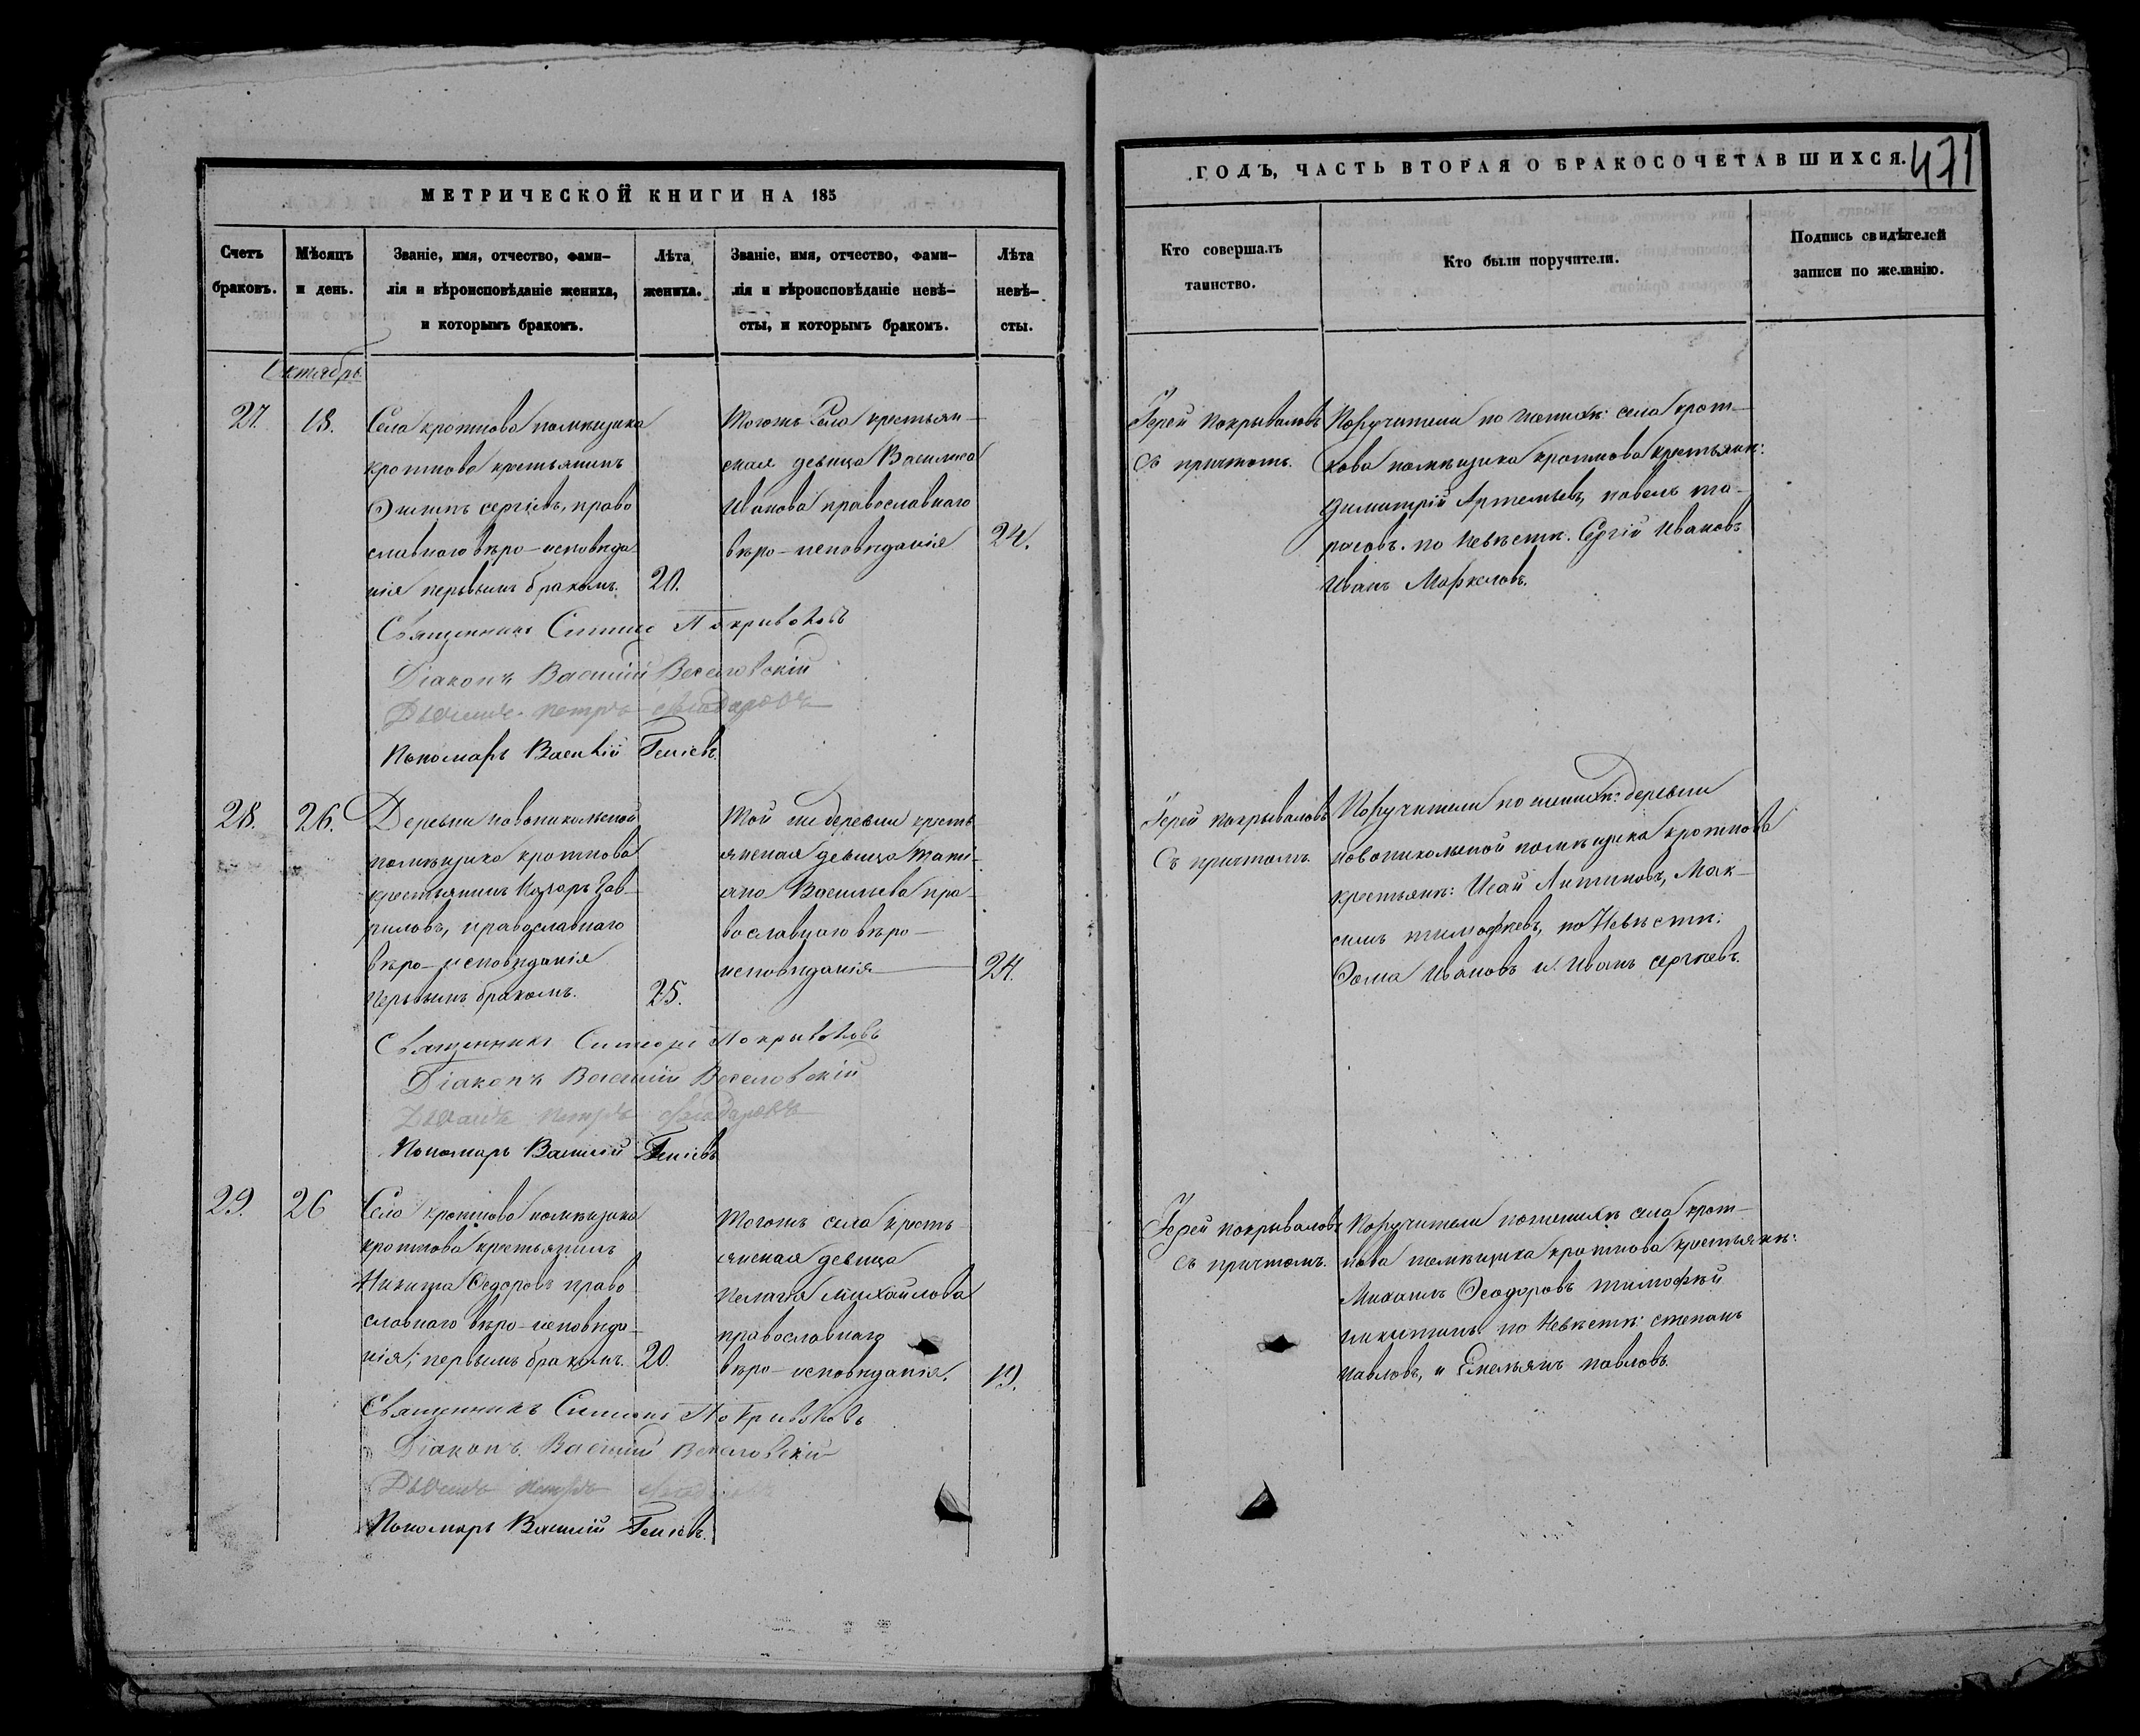 МЕТРИЧЕСКОЙ КНИГИ НА 185
Счетъ браковъ.
Мѣсяцъ и день.
Званіе, имя, отчество, фами-
лія и вѣроисповѣданіе жениха,
и которымъ бракомъ.
Лѣта жениха.
Званіе, имя, отчество, фами-
лія и вѣроисповѣданіе невѣ-
сты, и которымъ бракомъ.
Лѣта невѣ-
сты.
Октябрь
27.
18.
Села кроткова помѣщика
кроткова крестьянинъ
Филипъ сергіевъ, право
славнаго вѣро-исповѣда
нія первымъ бракомъ.
20.
Тогожъ Села крестьян-
ская девица Василиса
Иванова православнаго
вѣро-исповѣданія
24.
Священникъ Симеонъ Покрываловъ
Діаконъ Василій Веселовскій
Дьячекъ петръ
Пономарь Василій Геніевъ
28.
26.
Деревни новоникольской
помѣщика кроткова
крестьянинъ Назаръ Гав-
риловъ, православнаго
вѣро-исповѣданія
первымъ бракомъ.
25.
Той же деревни кресть
янская девица Тати-
ана Васильева пра-
вославнаго вѣро-
исповѣданія
24.
Священникъ Симеонъ Покрываловъ
Діаконъ Василій Веселовскій
Дьячекъ петръ
Пономарь Василій Геніевъ
29.
26
Села кроткова помѣщика
кроткова крестьянинъ
Никита Ѳедоровъ право
славнаго вѣро-исповѣда-
нія; первымъ бракомъ.
20.
Тогожъ села кресть
янская девица
Пелагія Михайлова
православнаго
вѣро-исповѣданія.
19.
Священникъ Симеонъ Покрываловъ
Діаконъ Василій Веселовскій
Дьячекъ петръ
Пономарь Василій Геніевъ.
ГОДЪ, ЧАСТЬ ВТОРАЯ О БРАКОСОЧЕТАВШИХСЯ.
471
Кто совершалъ
таинство.
Кто были поручители.
Подпись свидѣтелей
записи по желанію.
Іерей Покрываловъ
съ причтомъ.
Поручители по женихѣ: села крот-
кова помѣщика кроткова крестьянѣ:
Димитрій Артемьевъ, павелъ та-
расовъ. по невѣстѣ. Сергій Ивановъ
Иванъ Маркеловъ.
Іерей покрываловъ
Съ причтомъ
Поручители по женихѣ: деревни
новоникольской помѣщика кроткова
крестьянѣ: Исай Антиповъ, Мак-
симъ тимофѣевъ, по Невѣстѣ:
Ѳома Ивановъ и Иванъ сергѣевъ.
Іерей покрываловъ
съ причтомъ.
Поручители по женихѣ села крот-
кова помѣщика кроткова крестьянѣ:
Михаилъ Ѳеодоровъ тимофѣй
никитинъ. по Невѣстѣ: степанъ
павловъ, и Емельянъ павловъ.